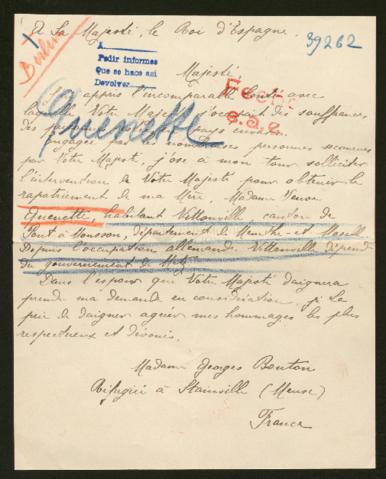 A Sa Majesté, le Roi d'Espagne.
39262
Berlin
A
Pedir informes
Que se hace así
Devolver
Majesté
Quenette
appris l'incomparable bonté avec
laquelle Votre Majesté s'occupait des souffrances
des pays
par les nombreuses personnes secourues
par Votre Majesté, j'ose à mon tour solliciter
l'intervention de Votre Majesté pour obtenir le
rapatriement de ma Mère, Madame Veuve
Quenette, habitant Vittonville, canton de
Pont à Mousson, département de Meurthe et Moselle.
Depuis l'occupation allemande Vittonville dépend
du gouvernement de Metz.
Dans l'espoir que Votre Majesté daignera
prendre ma demande en considération, je La
prie de daigner agréer mes hommages les plus
respectueux et dévoués.
Madame Georges Bouton
Réfugiée à Stainville (Meuse)
France